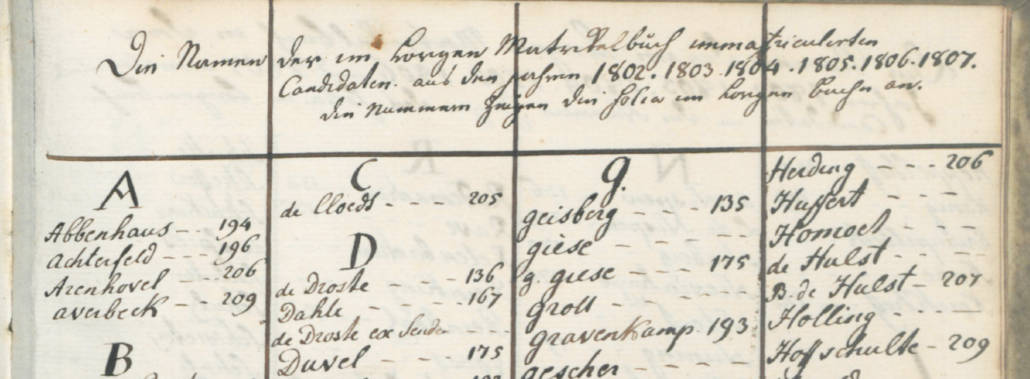 Die Namen der im vorigen Matrikelbuch immatriculirten
Candidaten aus den Jahren 1802. 1803. 1804. 1805. 1806. 1807.
die Nummern zeigen die Folia im vorigen Buche an.
A
Abbenhaus - - 194
Achterfeld - - - 196
Azenhovel - - - 206
averbeck - - 209
B
C
de Cloeds - - - - 205
D
de Droste - 136
Dahle - - - - 167
de Droste ex Senden
Duvel - - - 175
g.
geisberg - - - - 135
giese - - - - -
g. giese - - - - 175
Groll - - - -
gravenkamp. 193
gescher - - -
Heiding - - - 206
Huffert - -
Homoet - - -
de Hulst - -
B. de Hulst - 207
Holling - - - -
Hoffschulte - 209